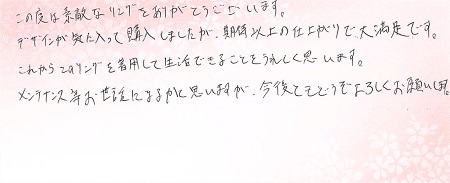 この度は素敵なリングをありがとうございます。
デザインが気に入って購入しましたが、期待以上の仕上がりで大満足です。
これからこのリングを着用して生活できることをうれしく思います。
メンテナンス等お世話になるかと思いますが、今後ともどうぞよろしくお願いします。